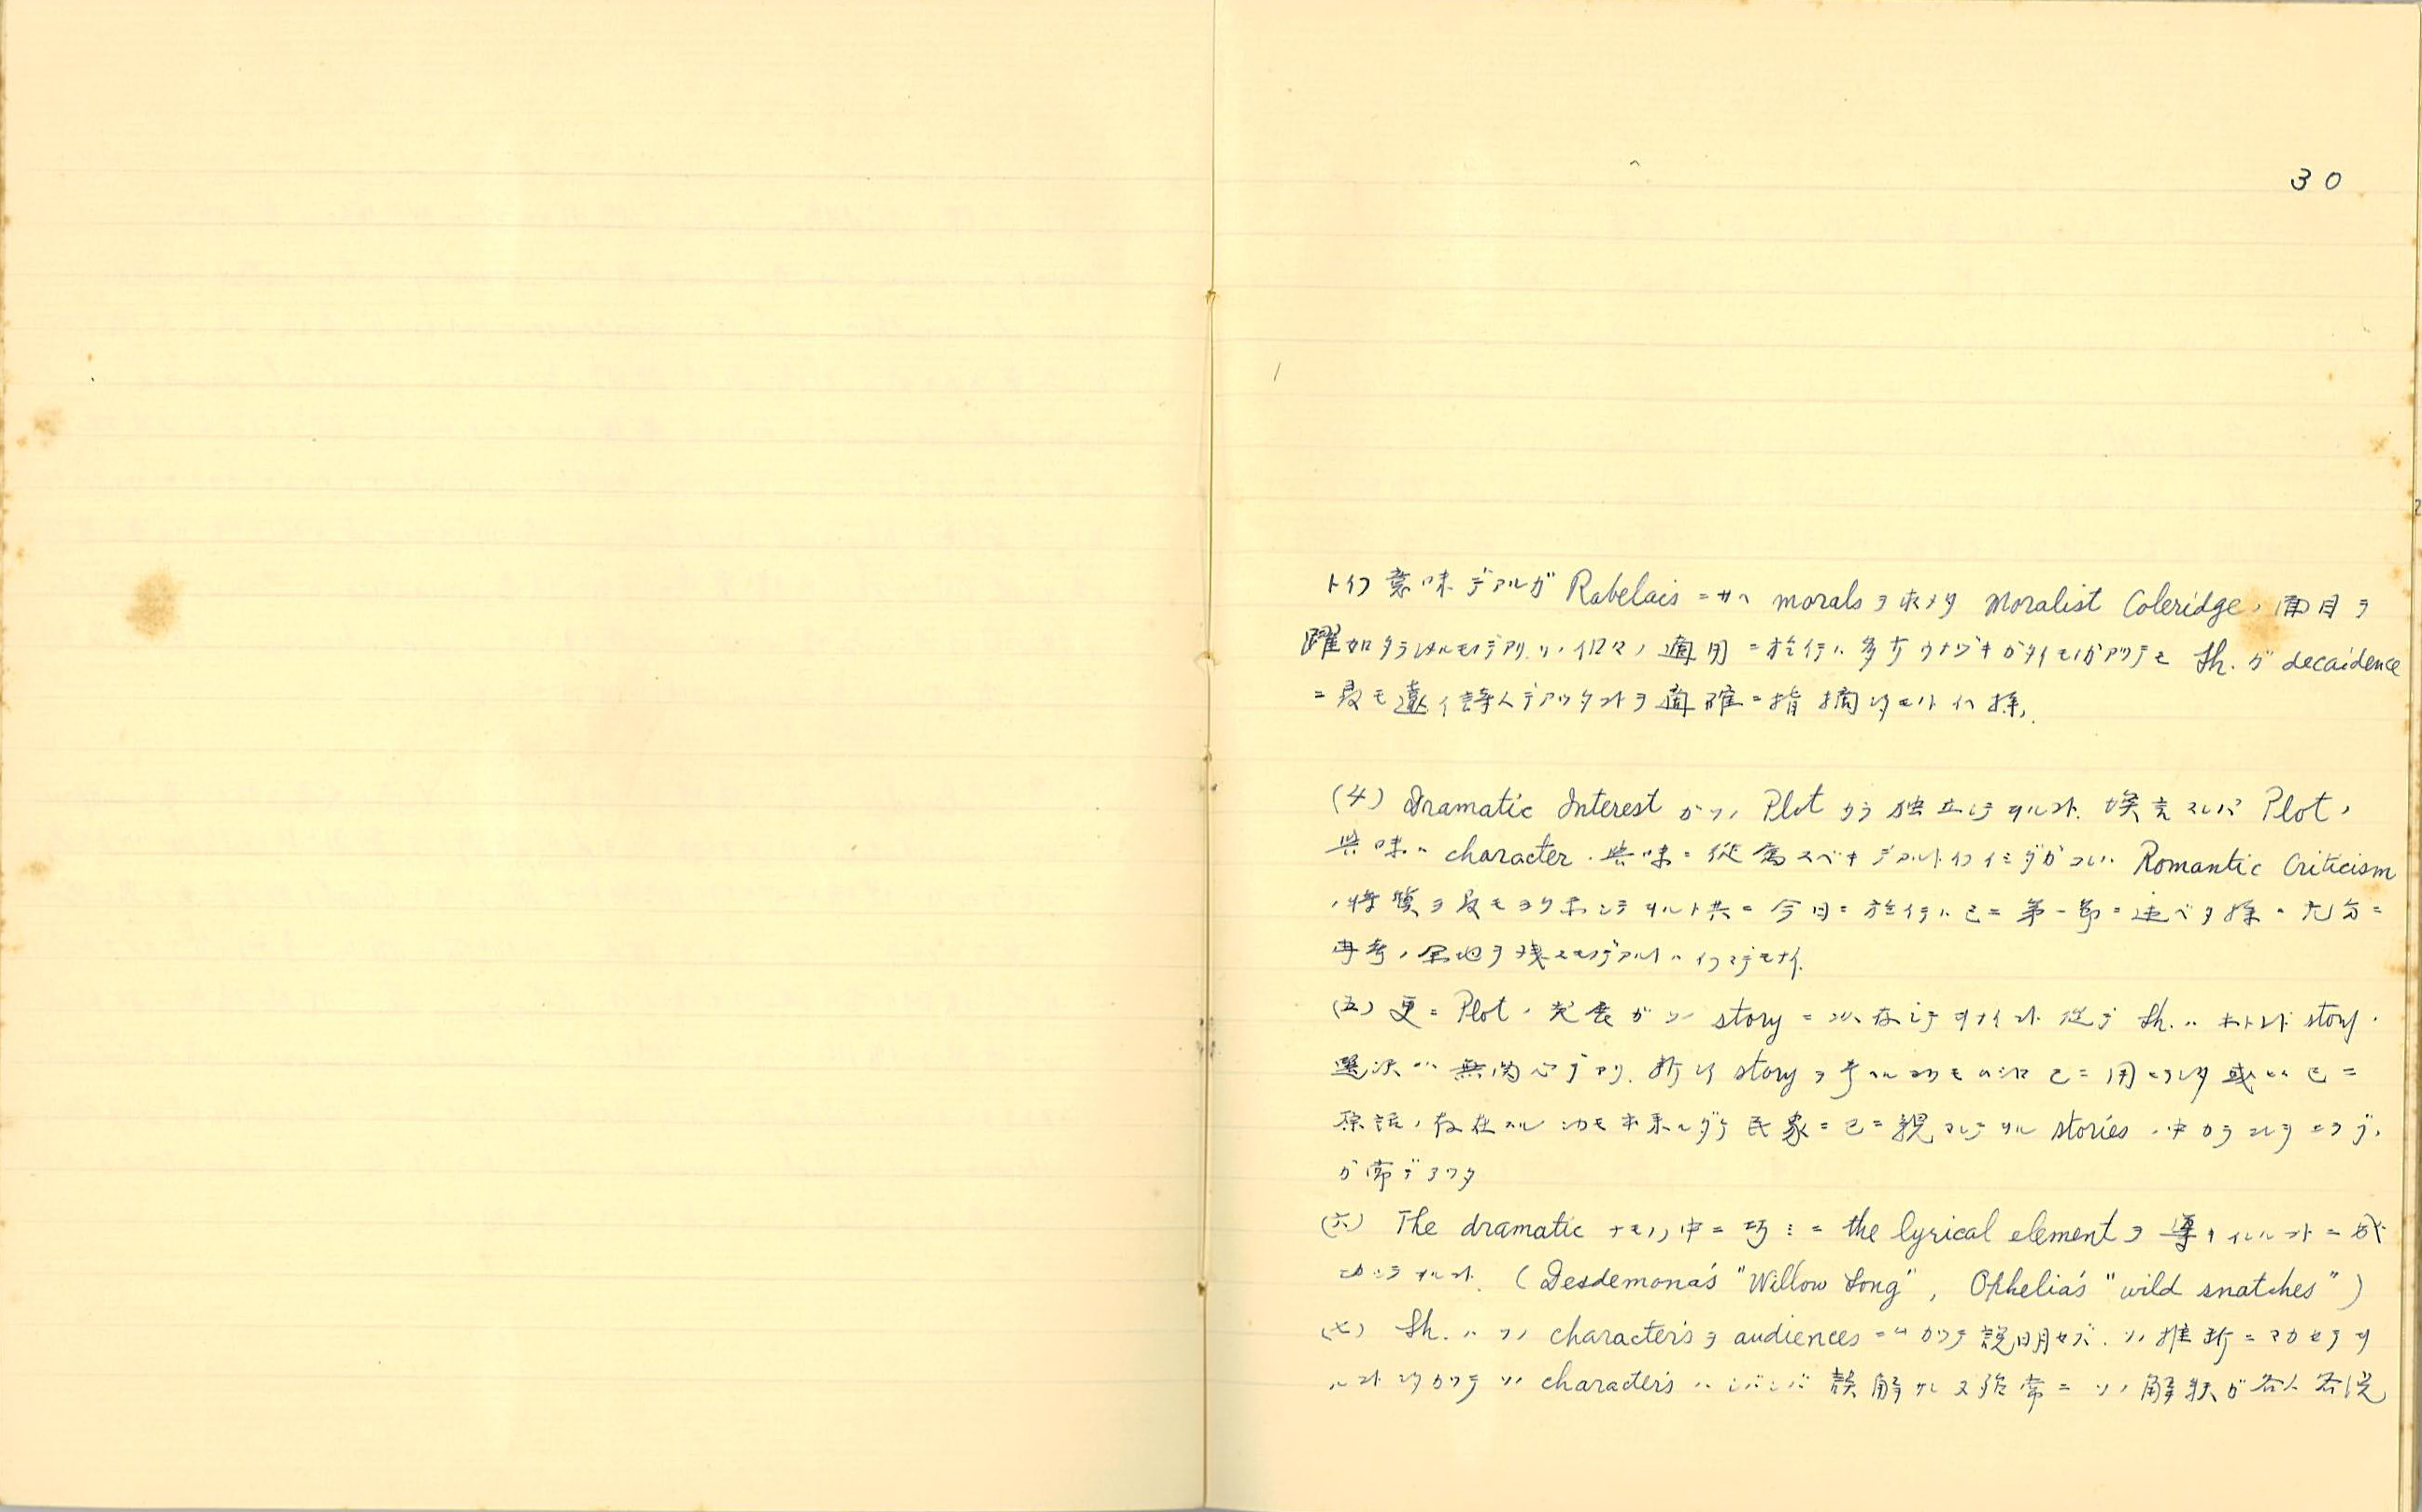 30
トイフ意味デアルガ Rabelais ニサヘ morals ヲ求メタ Moralist Coleridge ノ面目ヲ
躍如タラシメルモノデアリ、ソノ個々ノ適用ニ於テハ多少ウナヅキガタイモノガアツテモ Sh. ガ decaidence
ニ最モ遠イ詩人デアツタコトヲ適確ニ指摘シタモノトイヘ様。
(4) Dramatic Interest ガソノ Plot カラ独立シテヰルコト. 換言スレバ Plot ノ
興味ハ character ノ興味ニ従属スベキデアルトイフイミダガコレハ Romantic Criticism
ノ特質ヲ最モヨク示シテヰルト共ニ今日ニ於テハ已ニ第一節ニ述ベタ様ニ充分ニ
再考ノ余地ヲ残スモノデアルトハイフマデモナイ.
(五) 更ニ Plot ノ発展ガソノ story ニ 存シテヰナイコト 従テ Sh. ハ ホトンド story ノ
選択ニハ無関心デアリ. 新シイ story ヲ考ヘルヨリモムシロ已ニ用ヒラレタ或ヒハ已ニ
原話ノ存在スル シカモ 民衆ニ已ニ親マレテヰル stories ノ中カラコレヲエラブノ
ガ常デアツタ
(六) The dramatic ナモノノ中ニ巧ミニ the lyrical element ヲ導キイレルコトニ成
功シテヰルコト. (Desdemona's "Willow Song", Ophelia's "wild snatches")
(七) Sh. ハソノ characters ヲ audiences ニムカツテ説明セズ. ソノ推断ニマカセテヰ
ルコト シタガツテソノ characters ハシバシバ誤解サレ又殆常ニソノ解釈ガ各人各説